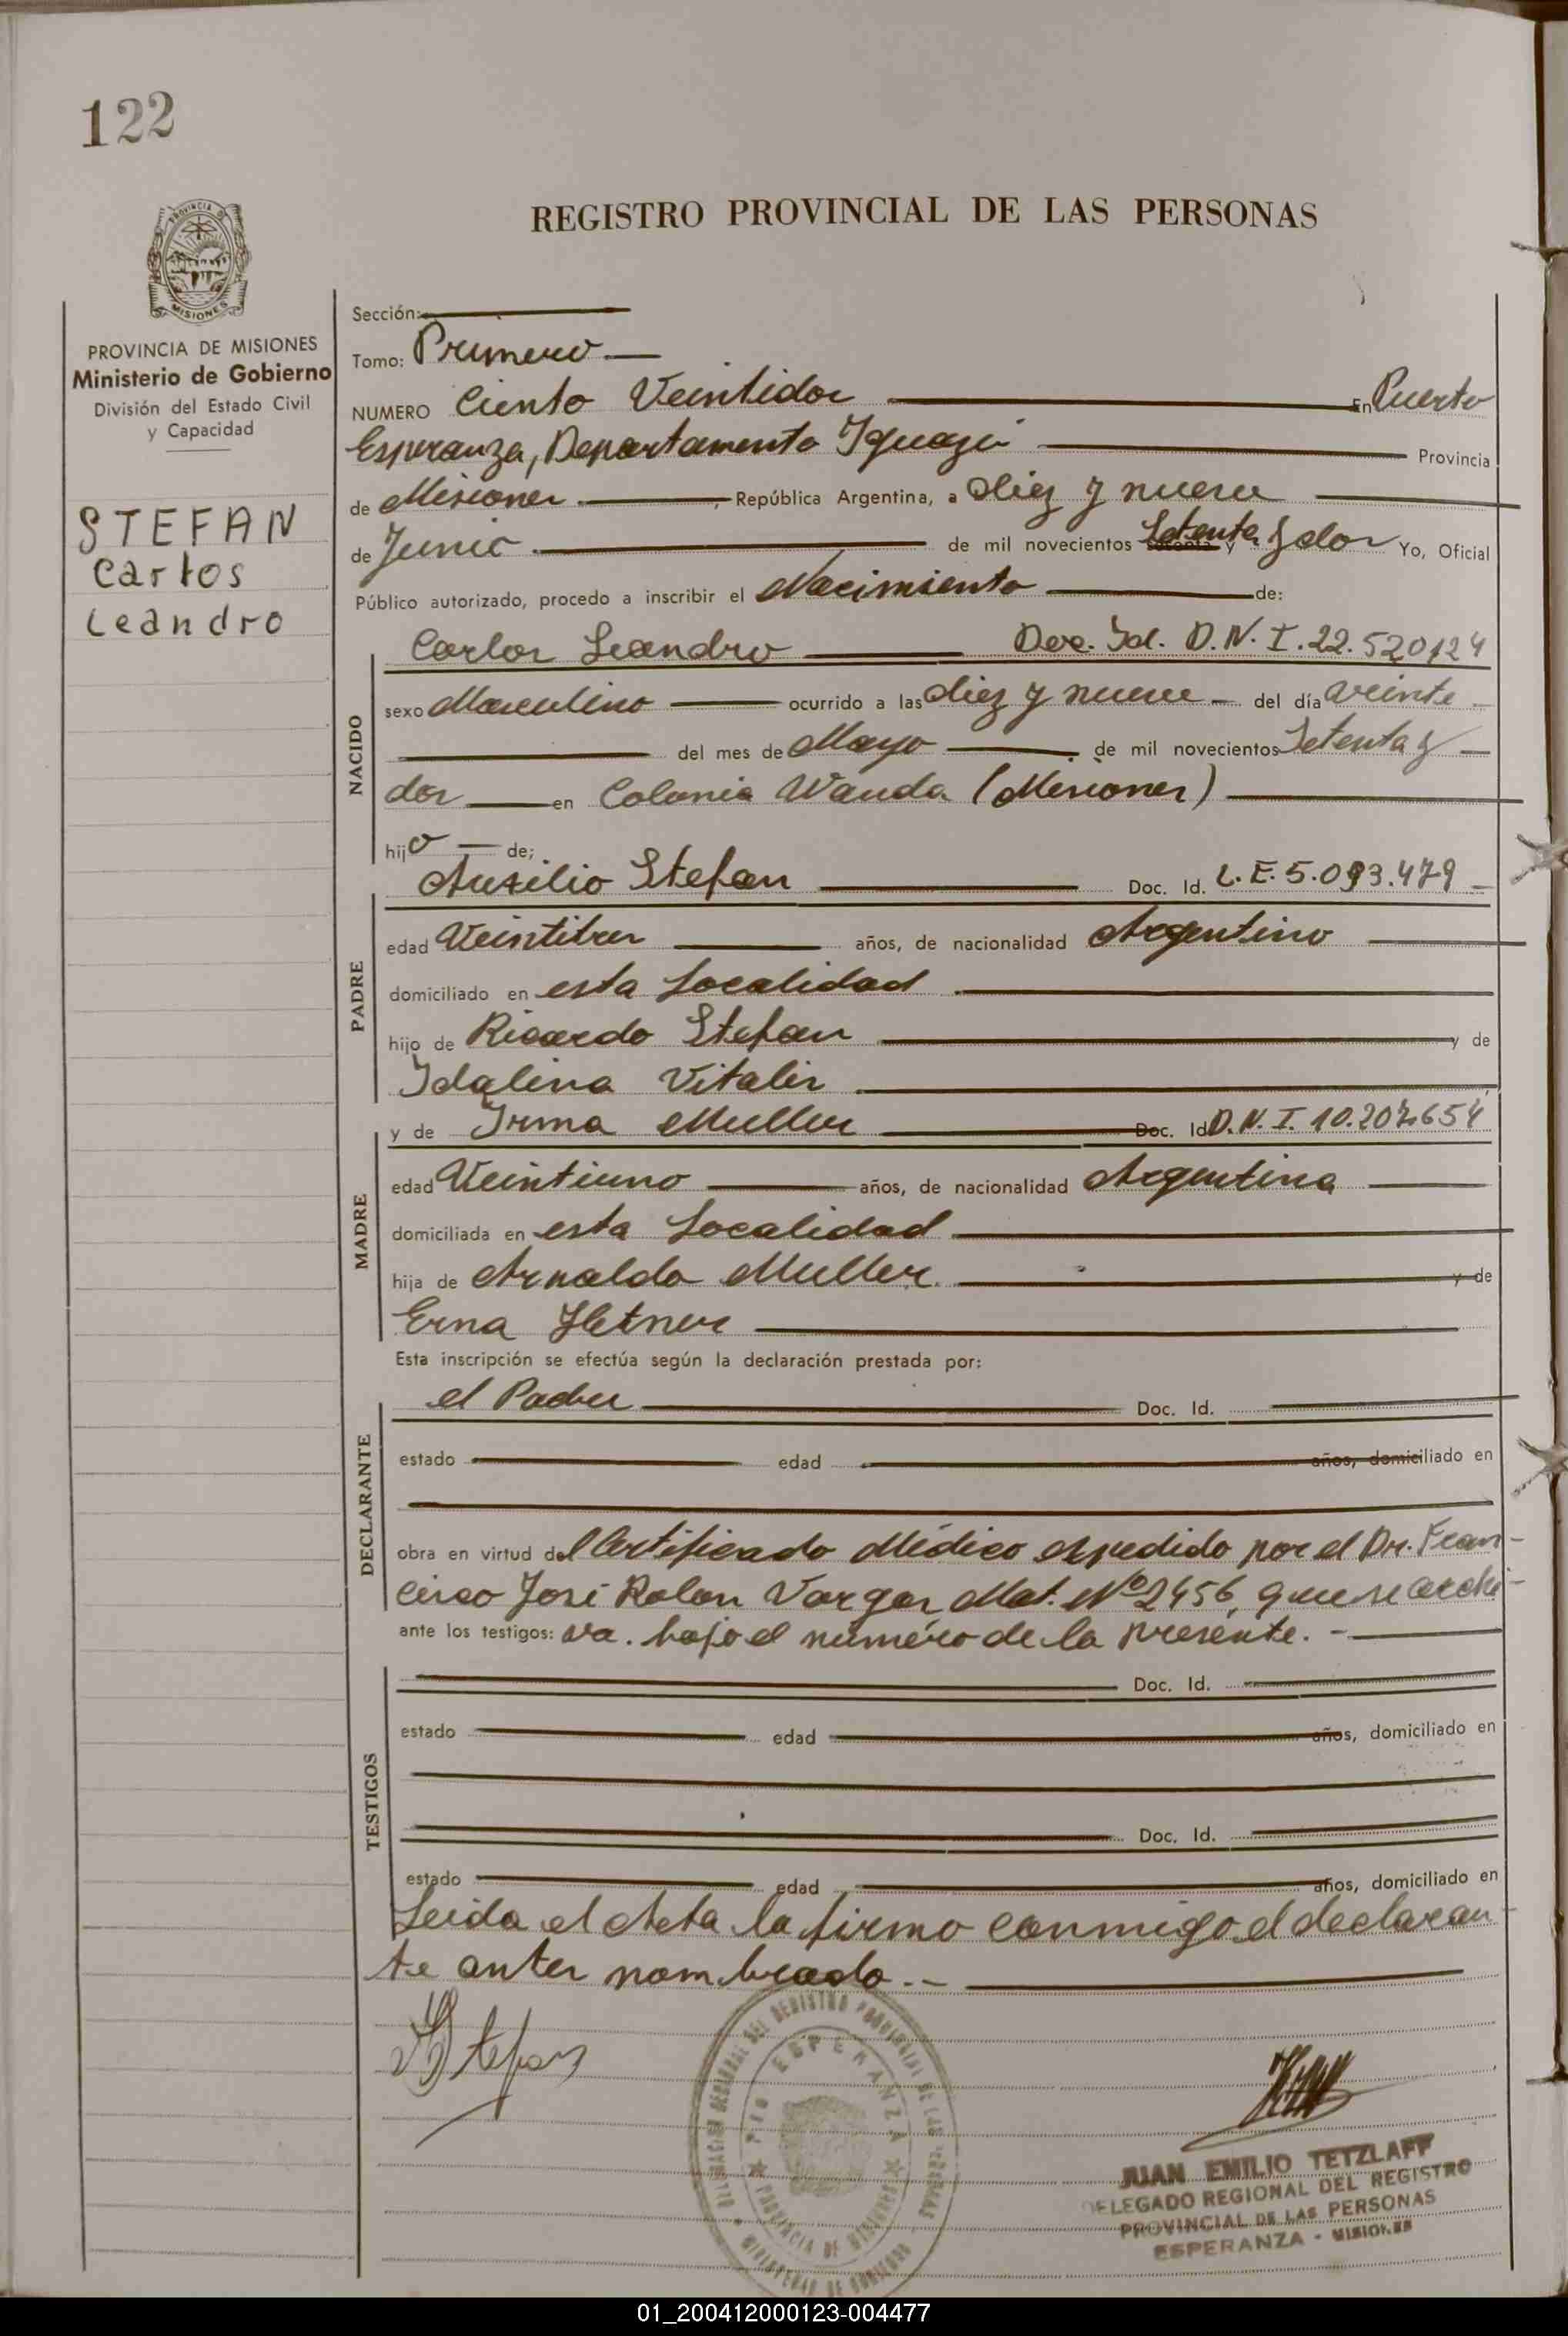 122
REGISTRO PROVINCIAL DE LAS PERSONAS
PROVINCIA DE MISIONES
Ministerio de Gobierno
División del Estado Civil
y Capacidad
STEFAN
Carlos
Leandro
Sección:
Tomo: Primero
NUMERO Ciento Veintidos En Puerto
Esperanza, Departamento Iguazú Provincia
de Misiones, República Argentina, a diez y nueve
de Junio de mil novecientos Setenta y dos Yo, Oficial
Público autorizado, procedo a inscribir el Nacimiento de:
NACIDO
Carlos Leandro Doc. Id. D.N.I. 22.520124
sexo Masculino ocurrido a las diez y nueve del día veinte
del mes de Mayo de mil novecientos Setenta y
dos en Colonia Wanda (Misiones)
hijo de:
PADRE
Auxilio Stefan Doc. Id. L.E. 5.093.479
edad Veintitres años, de nacionalidad Argentino
domiciliado en esta Localidad
hijo de Ricardo Stefan y de
Idalina Vitalis
MADRE
y de Irma Muller Doc. Id. D.N.I. 10.207.654
edad Veintiuno años, de nacionalidad Argentina
domiciliada en esta Localidad
hija de Arnaldo Muller y de
Erna Hetner
Esta inscripción se efectúa según la declaración prestada por:
DECLARANTE
el Padre Doc. Id.
estado edad años, domiciliado en
obra en virtud del Certificado Médico expedido por el Dr. Fran-
cisco José Rolon Vargas Mat. Nº 2456, que se archi-
ante los testigos: va. bajo el número de la presente.-
TESTIGOS
Doc. Id.
estado edad años, domiciliado en
Doc. Id.
estado edad años, domiciliado en
Leida el Acta la firmo conmigo el declaran-
te antes nombrado.-
Stefan
JUAN EMILIO TETZLAFF
DELEGADO REGIONAL DEL REGISTRO
PROVINCIAL DE LAS PERSONAS
ESPERANZA - MISIONES
01_200412000123-004477